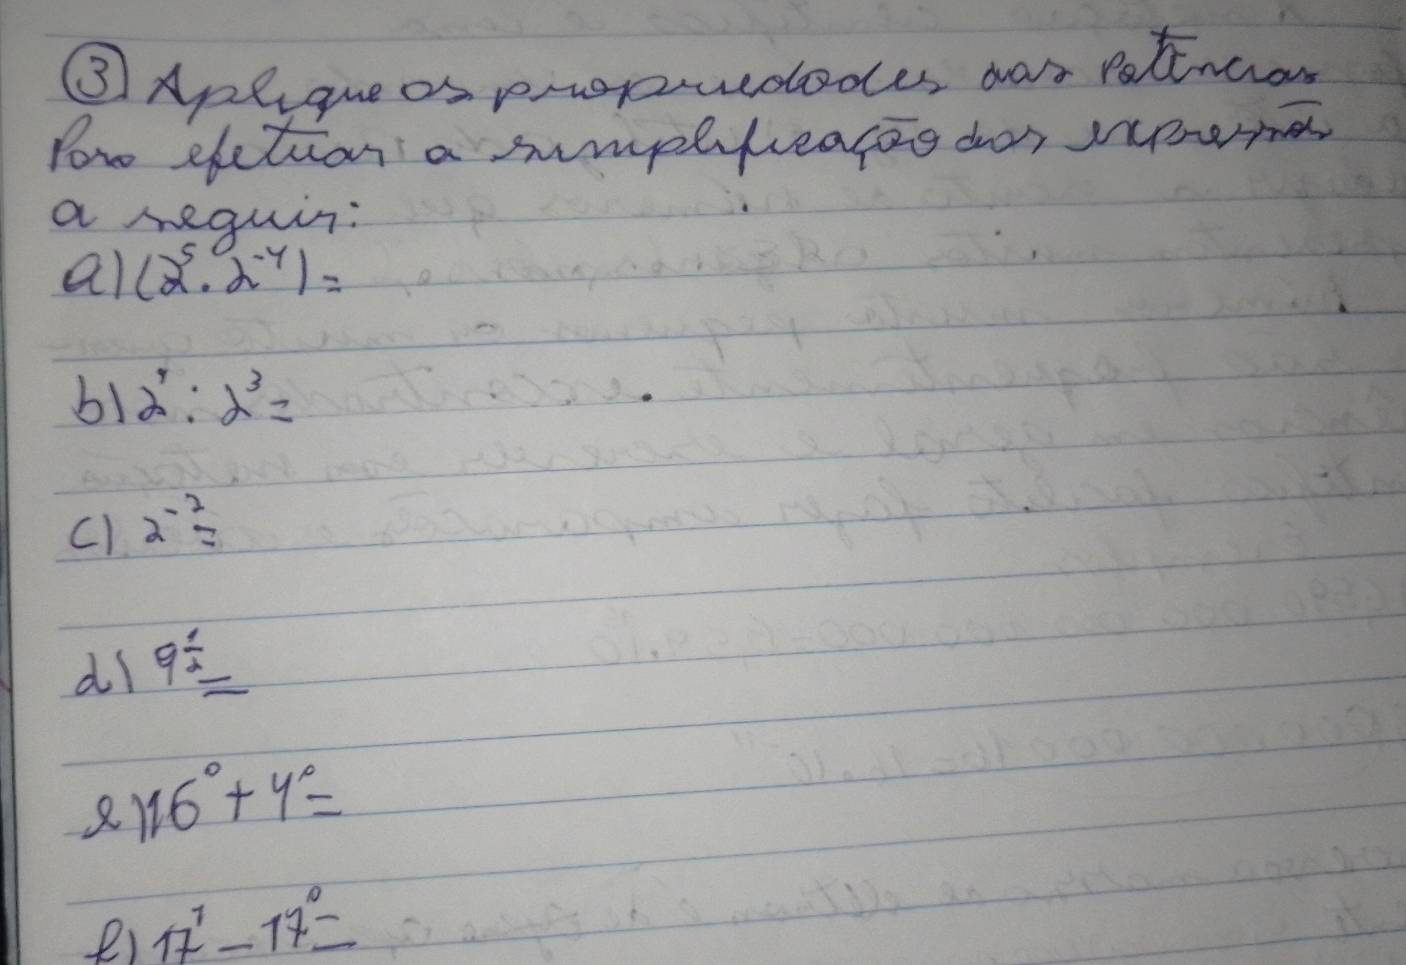 ③ Aplique as propriedades das Potências
Para efetuar a simplificação das expressões
a seguir:
a) (2⁵ . 2⁻⁴) =
b) 2¹ : 2³ =
c) 2⁻² =
d) 9^½ =
e) 16⁰ + 4⁰ =
f) 17¹ – 17⁰ =